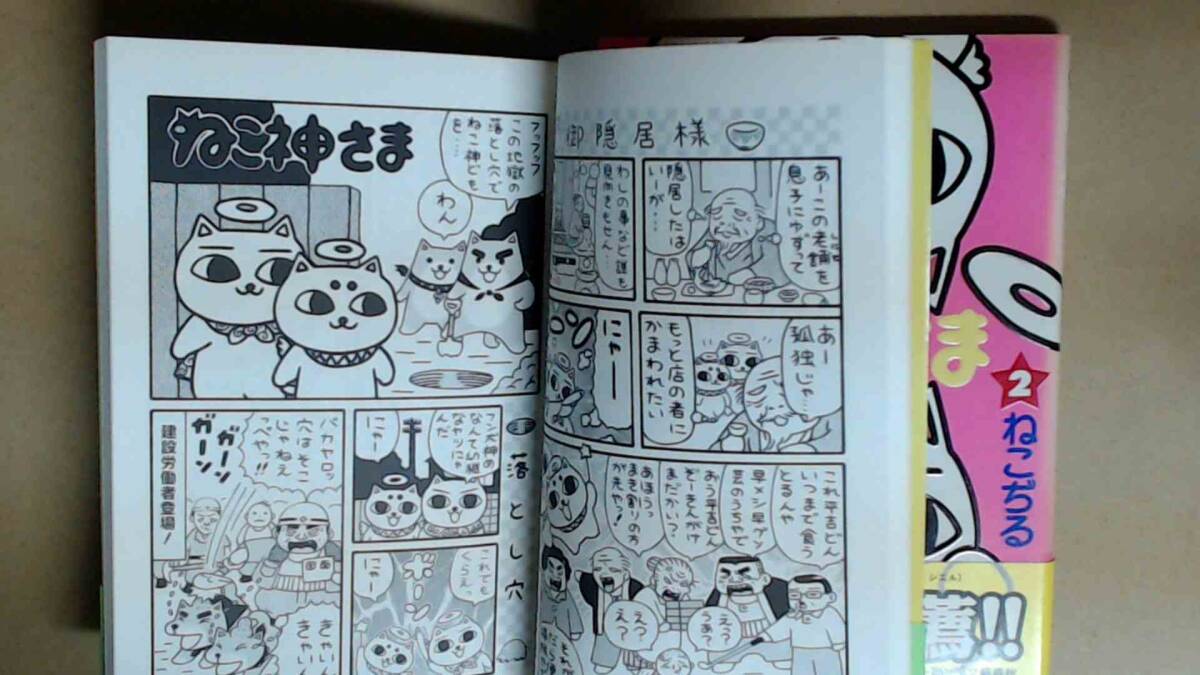 御隠居様
あーこの老舗を
息子にゆずって
隠居したは
いーが…
わしの事など誰も
見向きもせん…
あー
孤独じゃ…
もっと店の者に
かまわれたい
にゃーー
これ平吉どん
いつまで食う
とるんや
早メシ早グソ
芸のうちやで
おう平吉どん
ぞーきんがけ
まだかい?
あほうっ
まき割りの方
が先やっ!
うあ?
え?
え?
ねこ神さま
フッフッフ
この地獄の
落とし穴で
ねこ神どもを…
わん
落とし穴
フン犬神の
なんて幼稚
なやりにゃ
んだ
にゃー
これでも
くらえっ
にゃー
ボーン
バカヤロッ
穴はそこ
じゃねえ
っぺやっ!!
ガーン
ガーン
建設労働者登場!
きゃい
きゃい
ま
2
ねこぢる
シエル)
薦!!